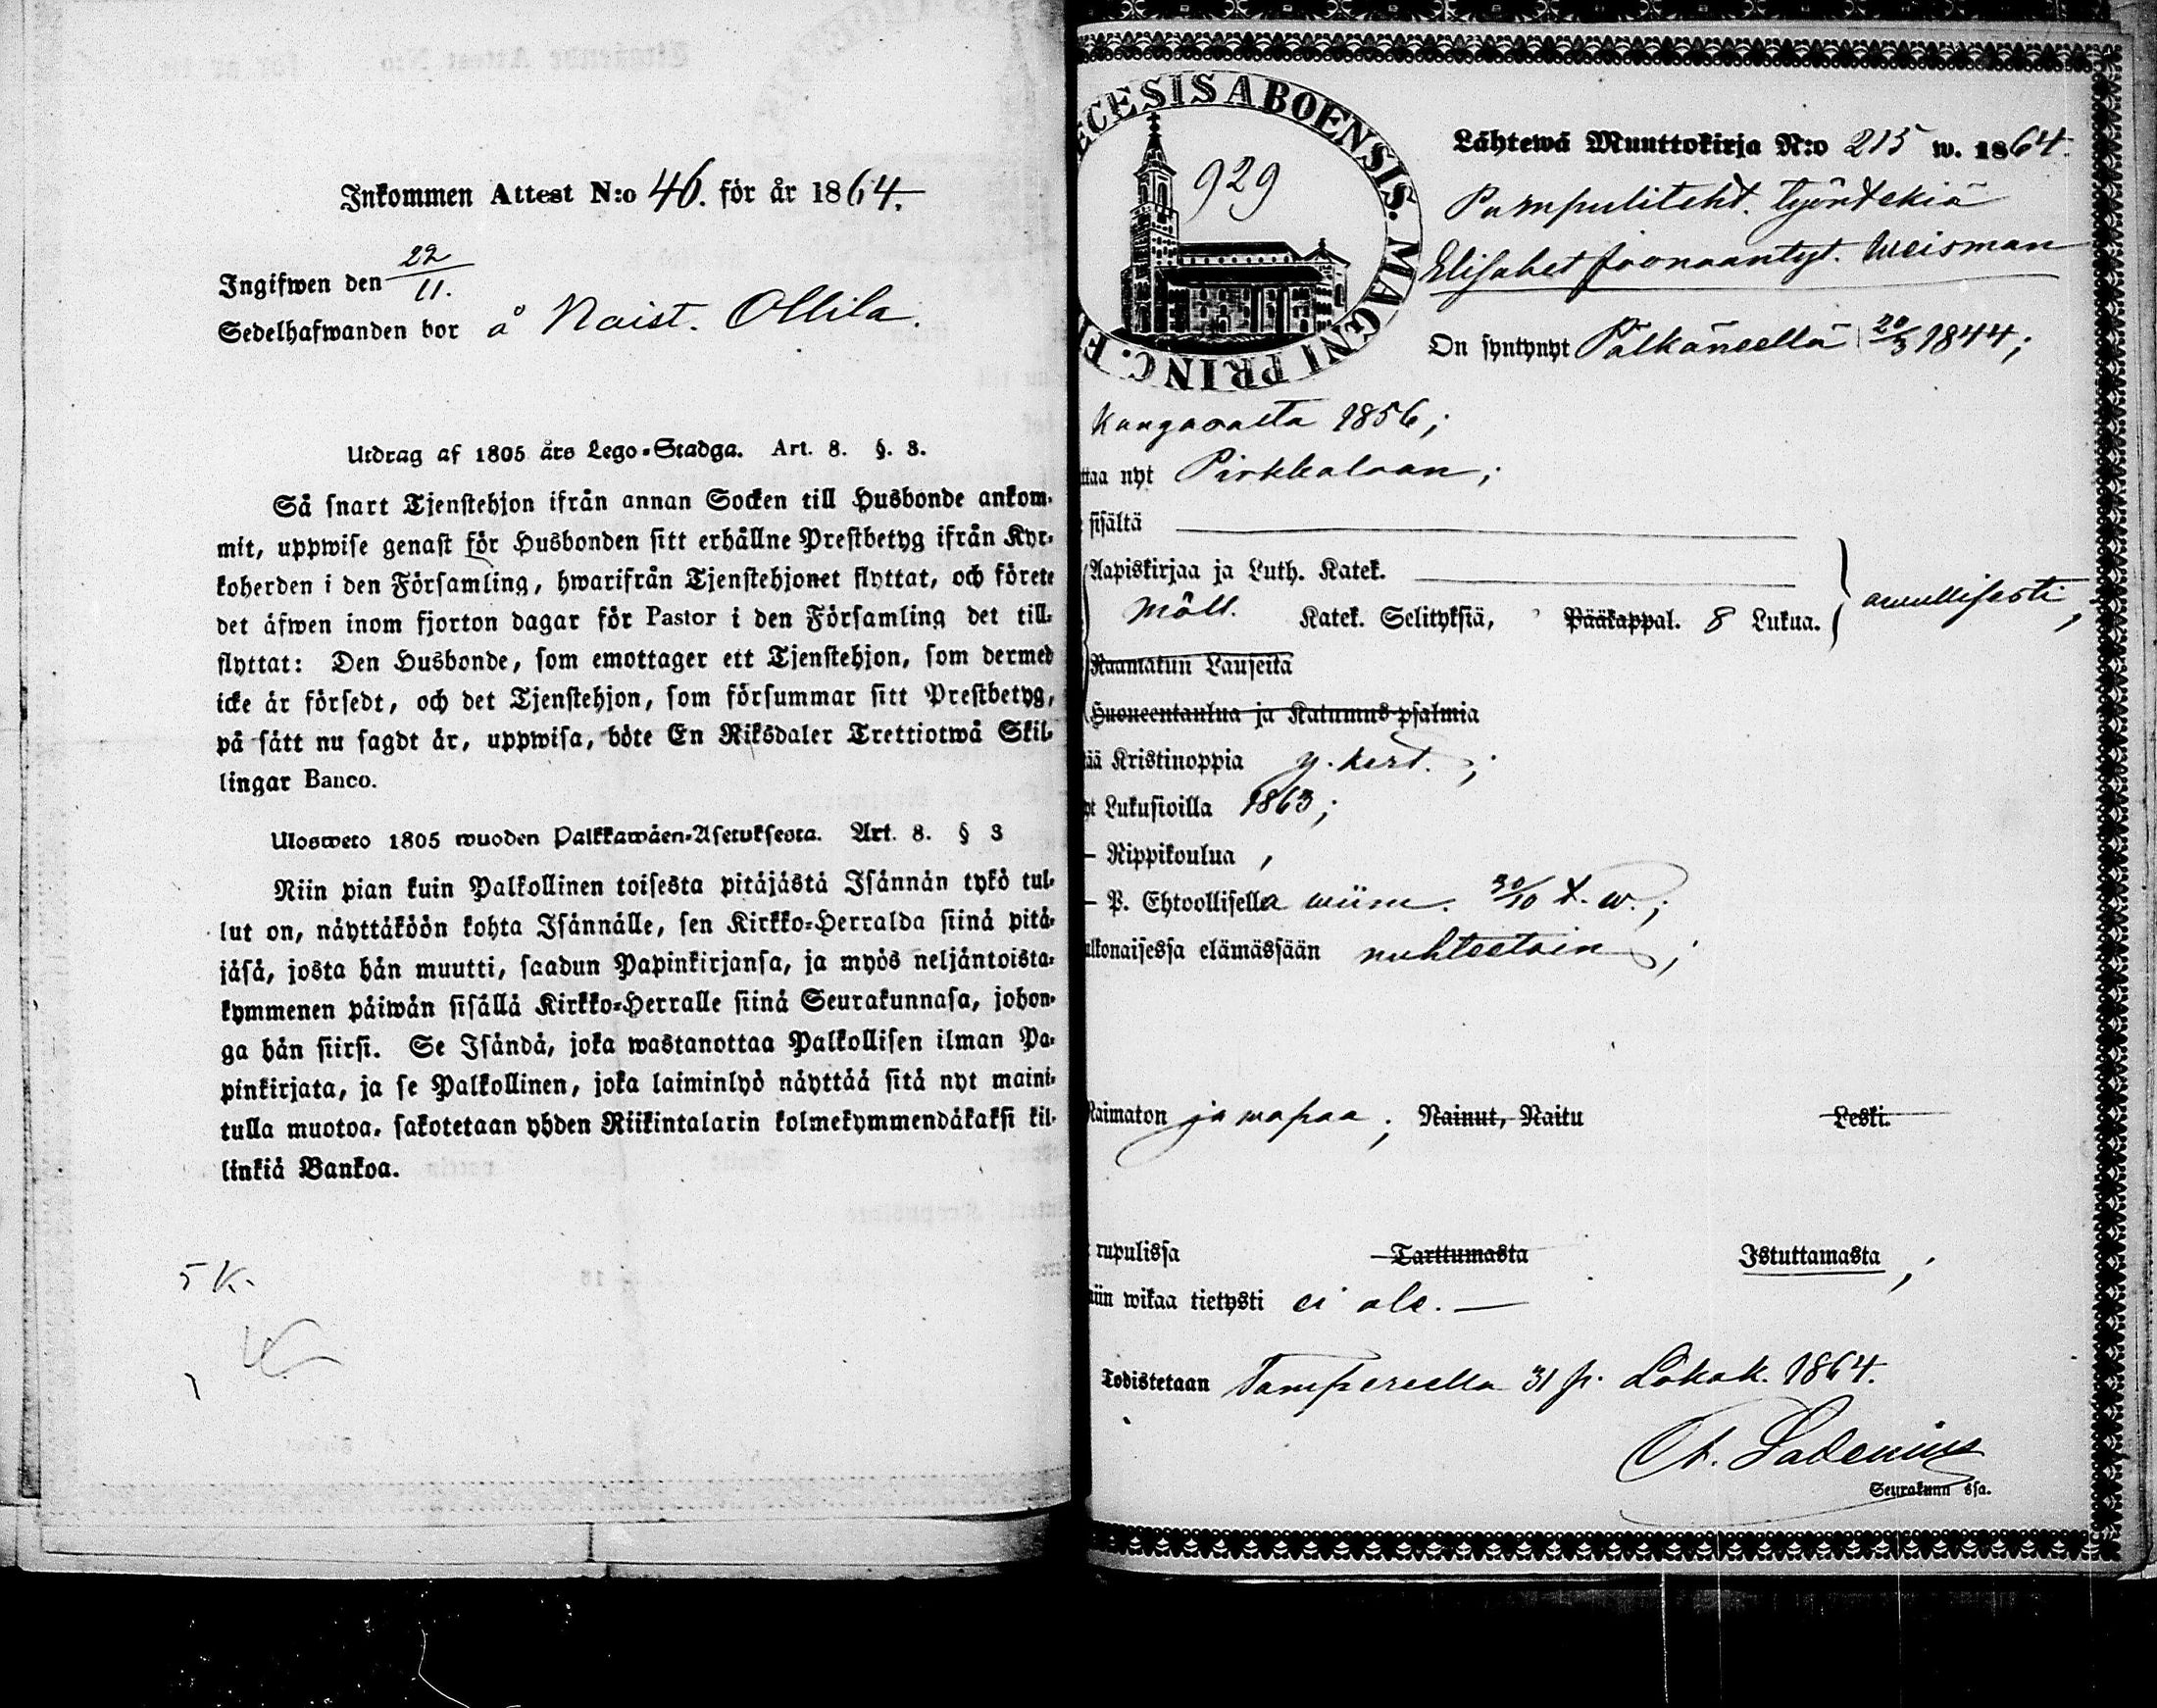 Inkommen Attest N:o 46. för år 1864.
Ingifwen den 22/11.
Sedelhafwanden bor å Naist. Ollila.
Utdrag af 1805 års Lego-Stadga. Art. 8. §. 3.
Så snart Tjenstehjon ifrån annan Socken till Husbonde ankom-
mit, uppwise genast för Husbonden sitt erhållne Prestbetyg ifrån Kyr-
koherden i den Församling, hwarifrån Tjenstehjonet flyttat, och förete
det äfwen inom fjorton dagar för Pastor i den Församling det till-
flyttat: Den Husbonde, som emottager ett Tjenstehjon, som dermed
icke är försedt, och det Tjenstehjon, som försummar sitt Prestbetyg,
på sätt nu sagdt är, uppwisa, böte En Riksdaler Trettiotwå Skil-
lingar Banco.
Ulosweto 1805 wuoden Palkkawäen-Asetuksesta. Art. 8. § 3
Niin pian kuin Palkollinen toisesta pitäjästä Isännän tykö tul-
lut on, näyttäköön kohta Isännälle, sen Kirkko-Herralda siinä pitä-
jäsä, josta hän muutti, saadun Papinkirjansa, ja myös neljäntoista-
kymmenen päiwän sisällä Kirkko-Herralle siinä Seurakunnasa, johon-
ga hän siirsi. Se Isändä, joka wastanottaa Palkollisen ilman Pa-
pinkirjata, ja se Palkollinen, joka laiminlyö näyttää sitä nyt maini-
tulla muotoa, sakotetaan yhden Riikintalarin kolmekymmendäkaksi kil-
linkiä Bankoa.
5 K.
ECESIS ABOENSIS. MAGNI PRINC. F
929
Lähtewä Muuttokirja N:o 215 w. 1864.
Pumpulitehd. työntekiä
Elisabet Joonaantyt. Weisman
On syntynyt Pälkäneellä 20/3 1844;
Kangasalta 1856;
ttaa nyt Pirkkalaan;
sisältä
Aapiskirjaa ja Luth. Katek.
Möll. Katek. Selityksiä, Pääkappal. 8 Lukua. awullisesti,
Raamatun Lauseita
Huoneentaulua ja Katumus-psalmia
ää Kristinoppia y. kert.;
yt Lukusioilla 1863;
– Rippikoulua,
– P. Ehtoollisella wiim. 30/10 t. w.;
ulkonaisessa elämässään nuhteetoin;
Naimaton ja wapaa; Nainut, Naitu Leski.
rupulissa Tarttumasta Istuttamasta,
iin wikaa tietysti ei ole. —
Todistetaan Tampereella 31 p. Lokak. 1864.
Seurakunn ssa.